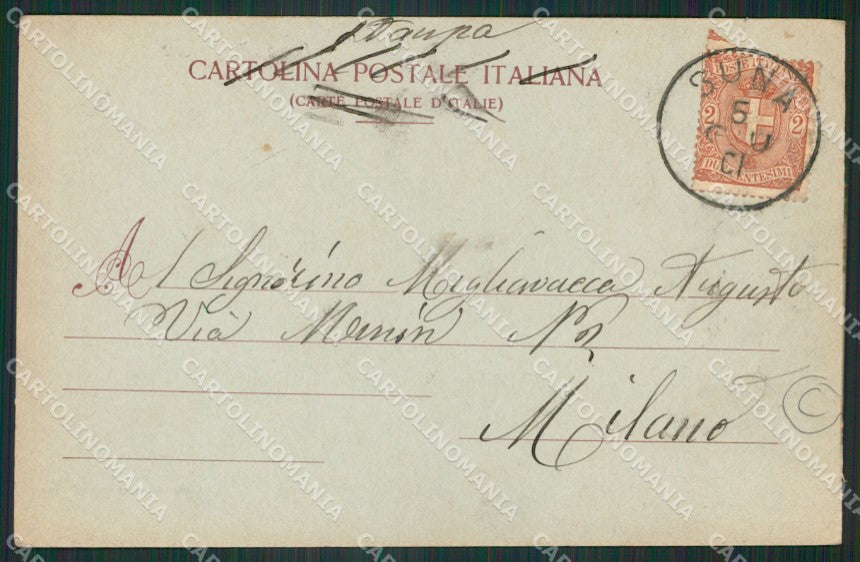 Stampa
CARTOLINA POSTALE ITALIANA
(CARTE POSTALE D'ITALIE)
POSTE ITALIANE
2 2
DUE CENTESIMI
SUNA
5
01
Al Signorino Migliavacca Augusto
Via Monin N 2
Milano
C
CARTOLINOMANIA